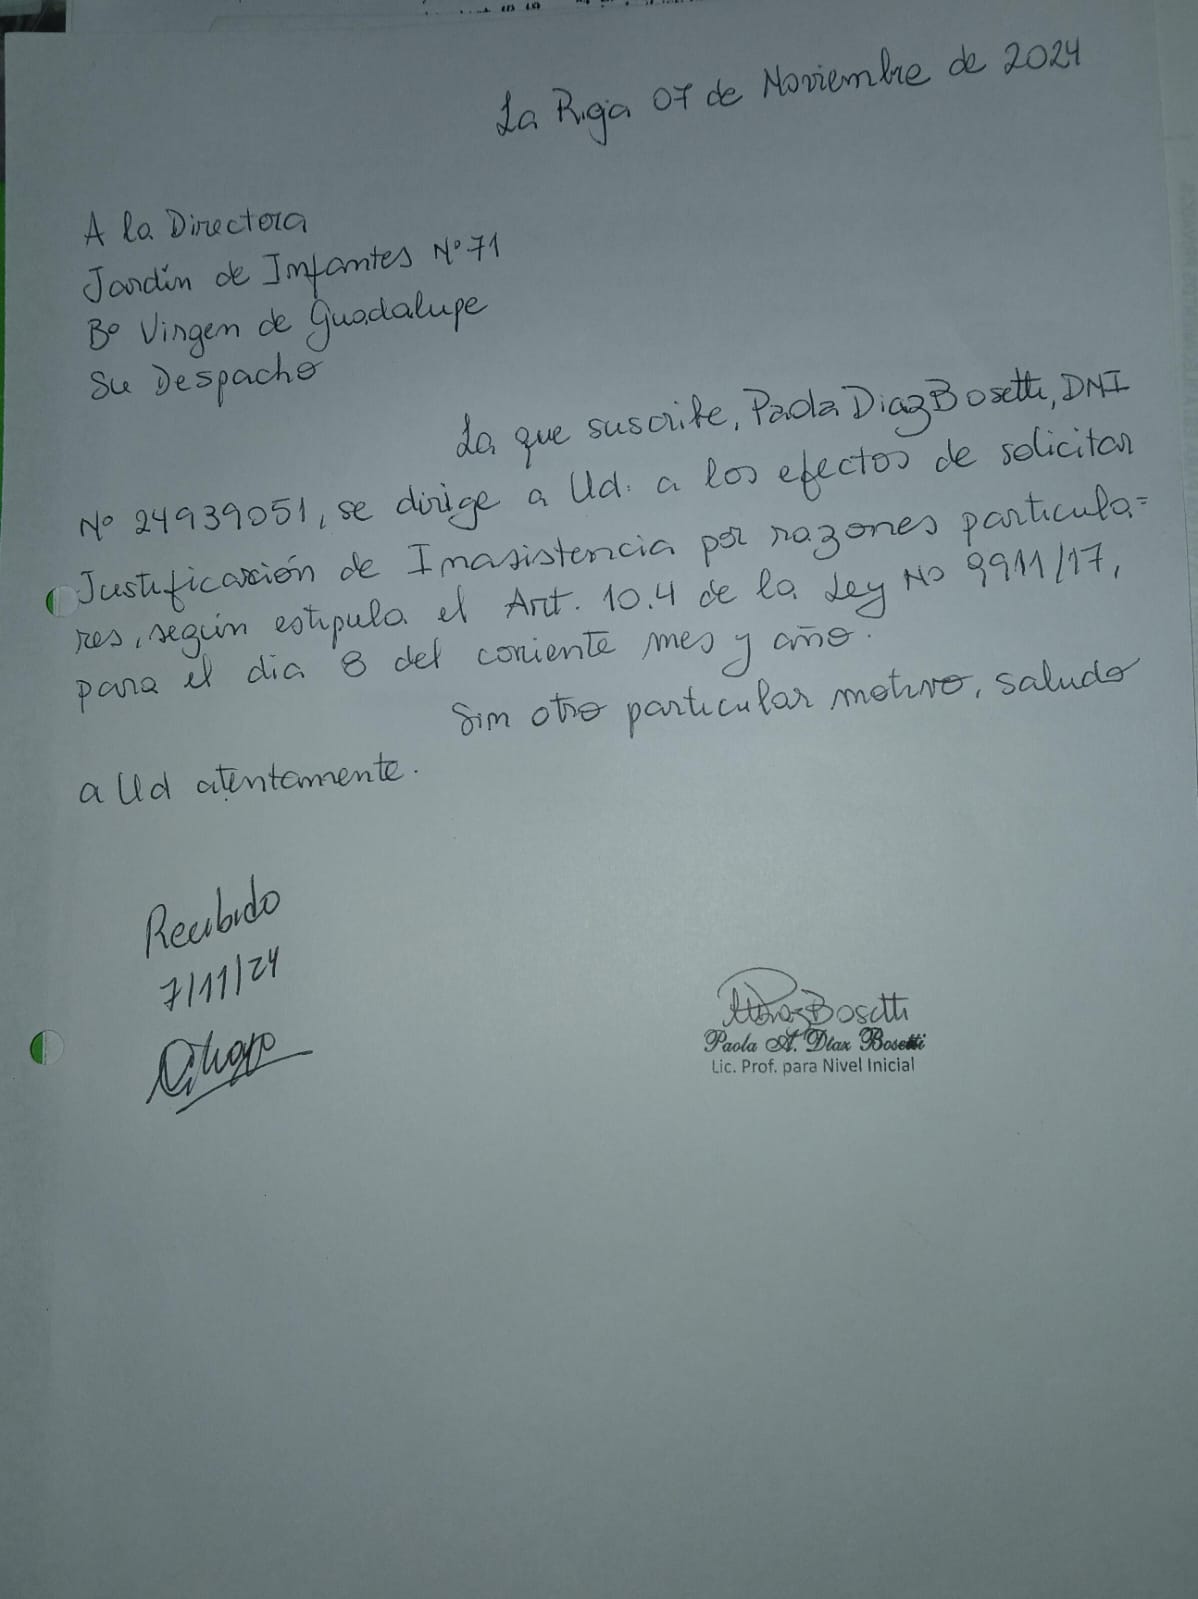 La Rioja 07 de Noviembre de 2024
A la Directora
Jardín de Infantes N° 71
B° Virgen de Guadalupe
Su Despacho
La que suscribe, Paola Diaz Bosetti, DNI
N° 24939051, se dirige a Ud. a los efectos de solicitar
Justificación de Inasistencia por razones particula=
res, según estipula el Art. 10.4 de la Ley N° 9911/17,
para el dia 8 del corriente mes y año.
Sin otro particular motivo, saludo
a Ud atentamente.
Recibido
7/11/24
Bosetti
Paola A. Díaz Bosetti
Lic. Prof. para Nivel Inicial